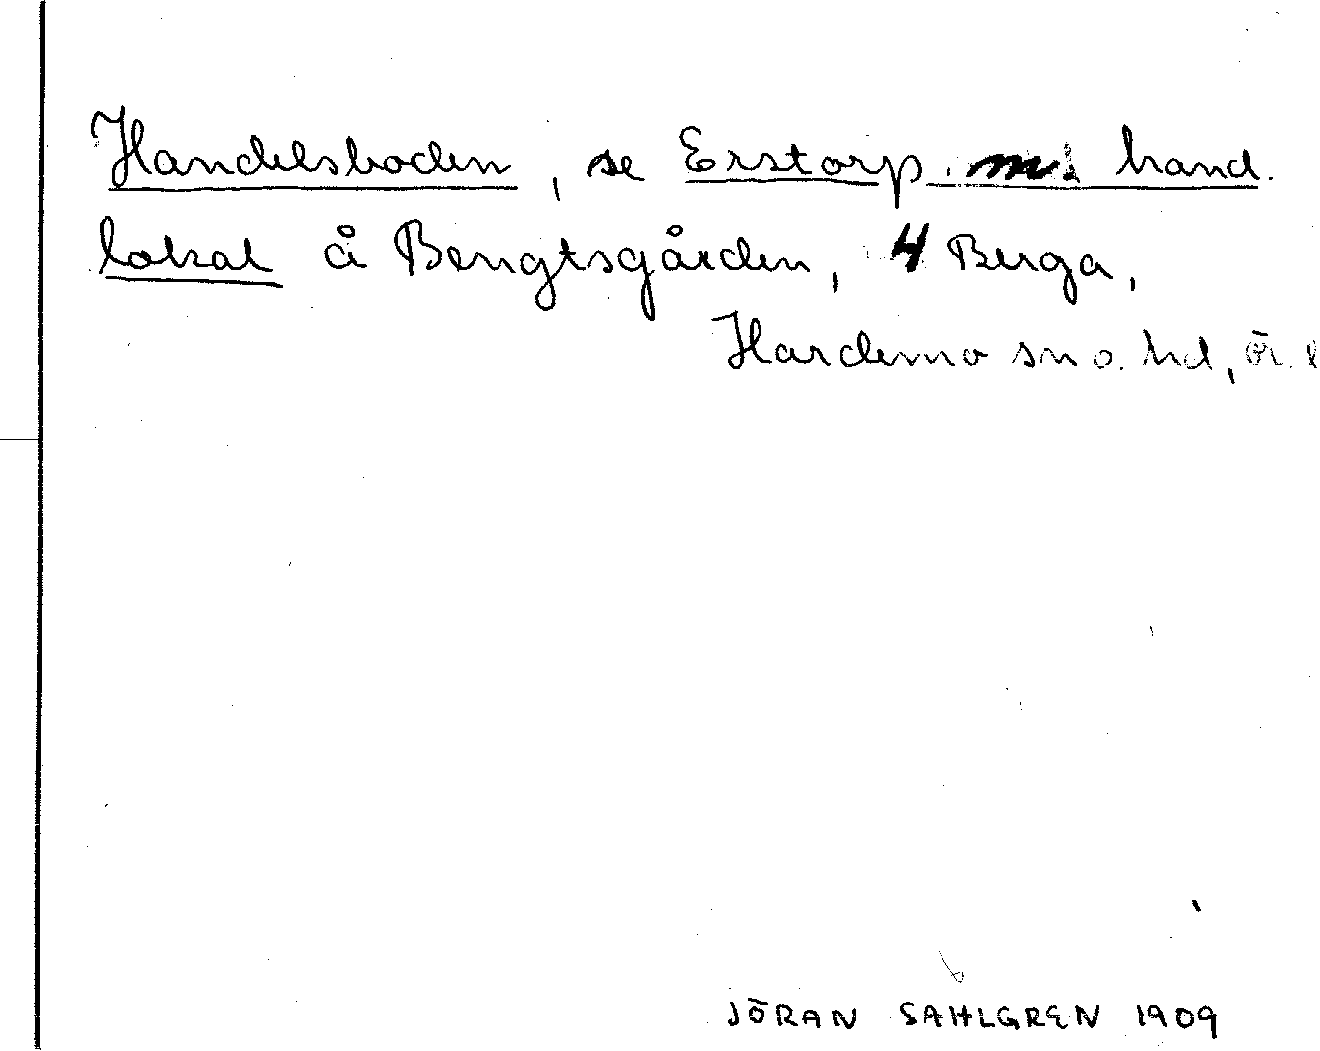 Handelsboden, se Erstorp. med hand.
lokal å Bengtsgården, 4 Berga,
Hardemo sn o. hd, ör. l
JÖRAN SAHLGREN 1909